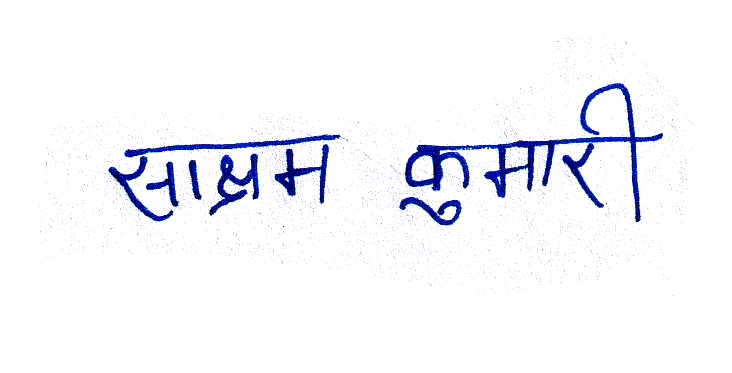 साक्षम कुमारी